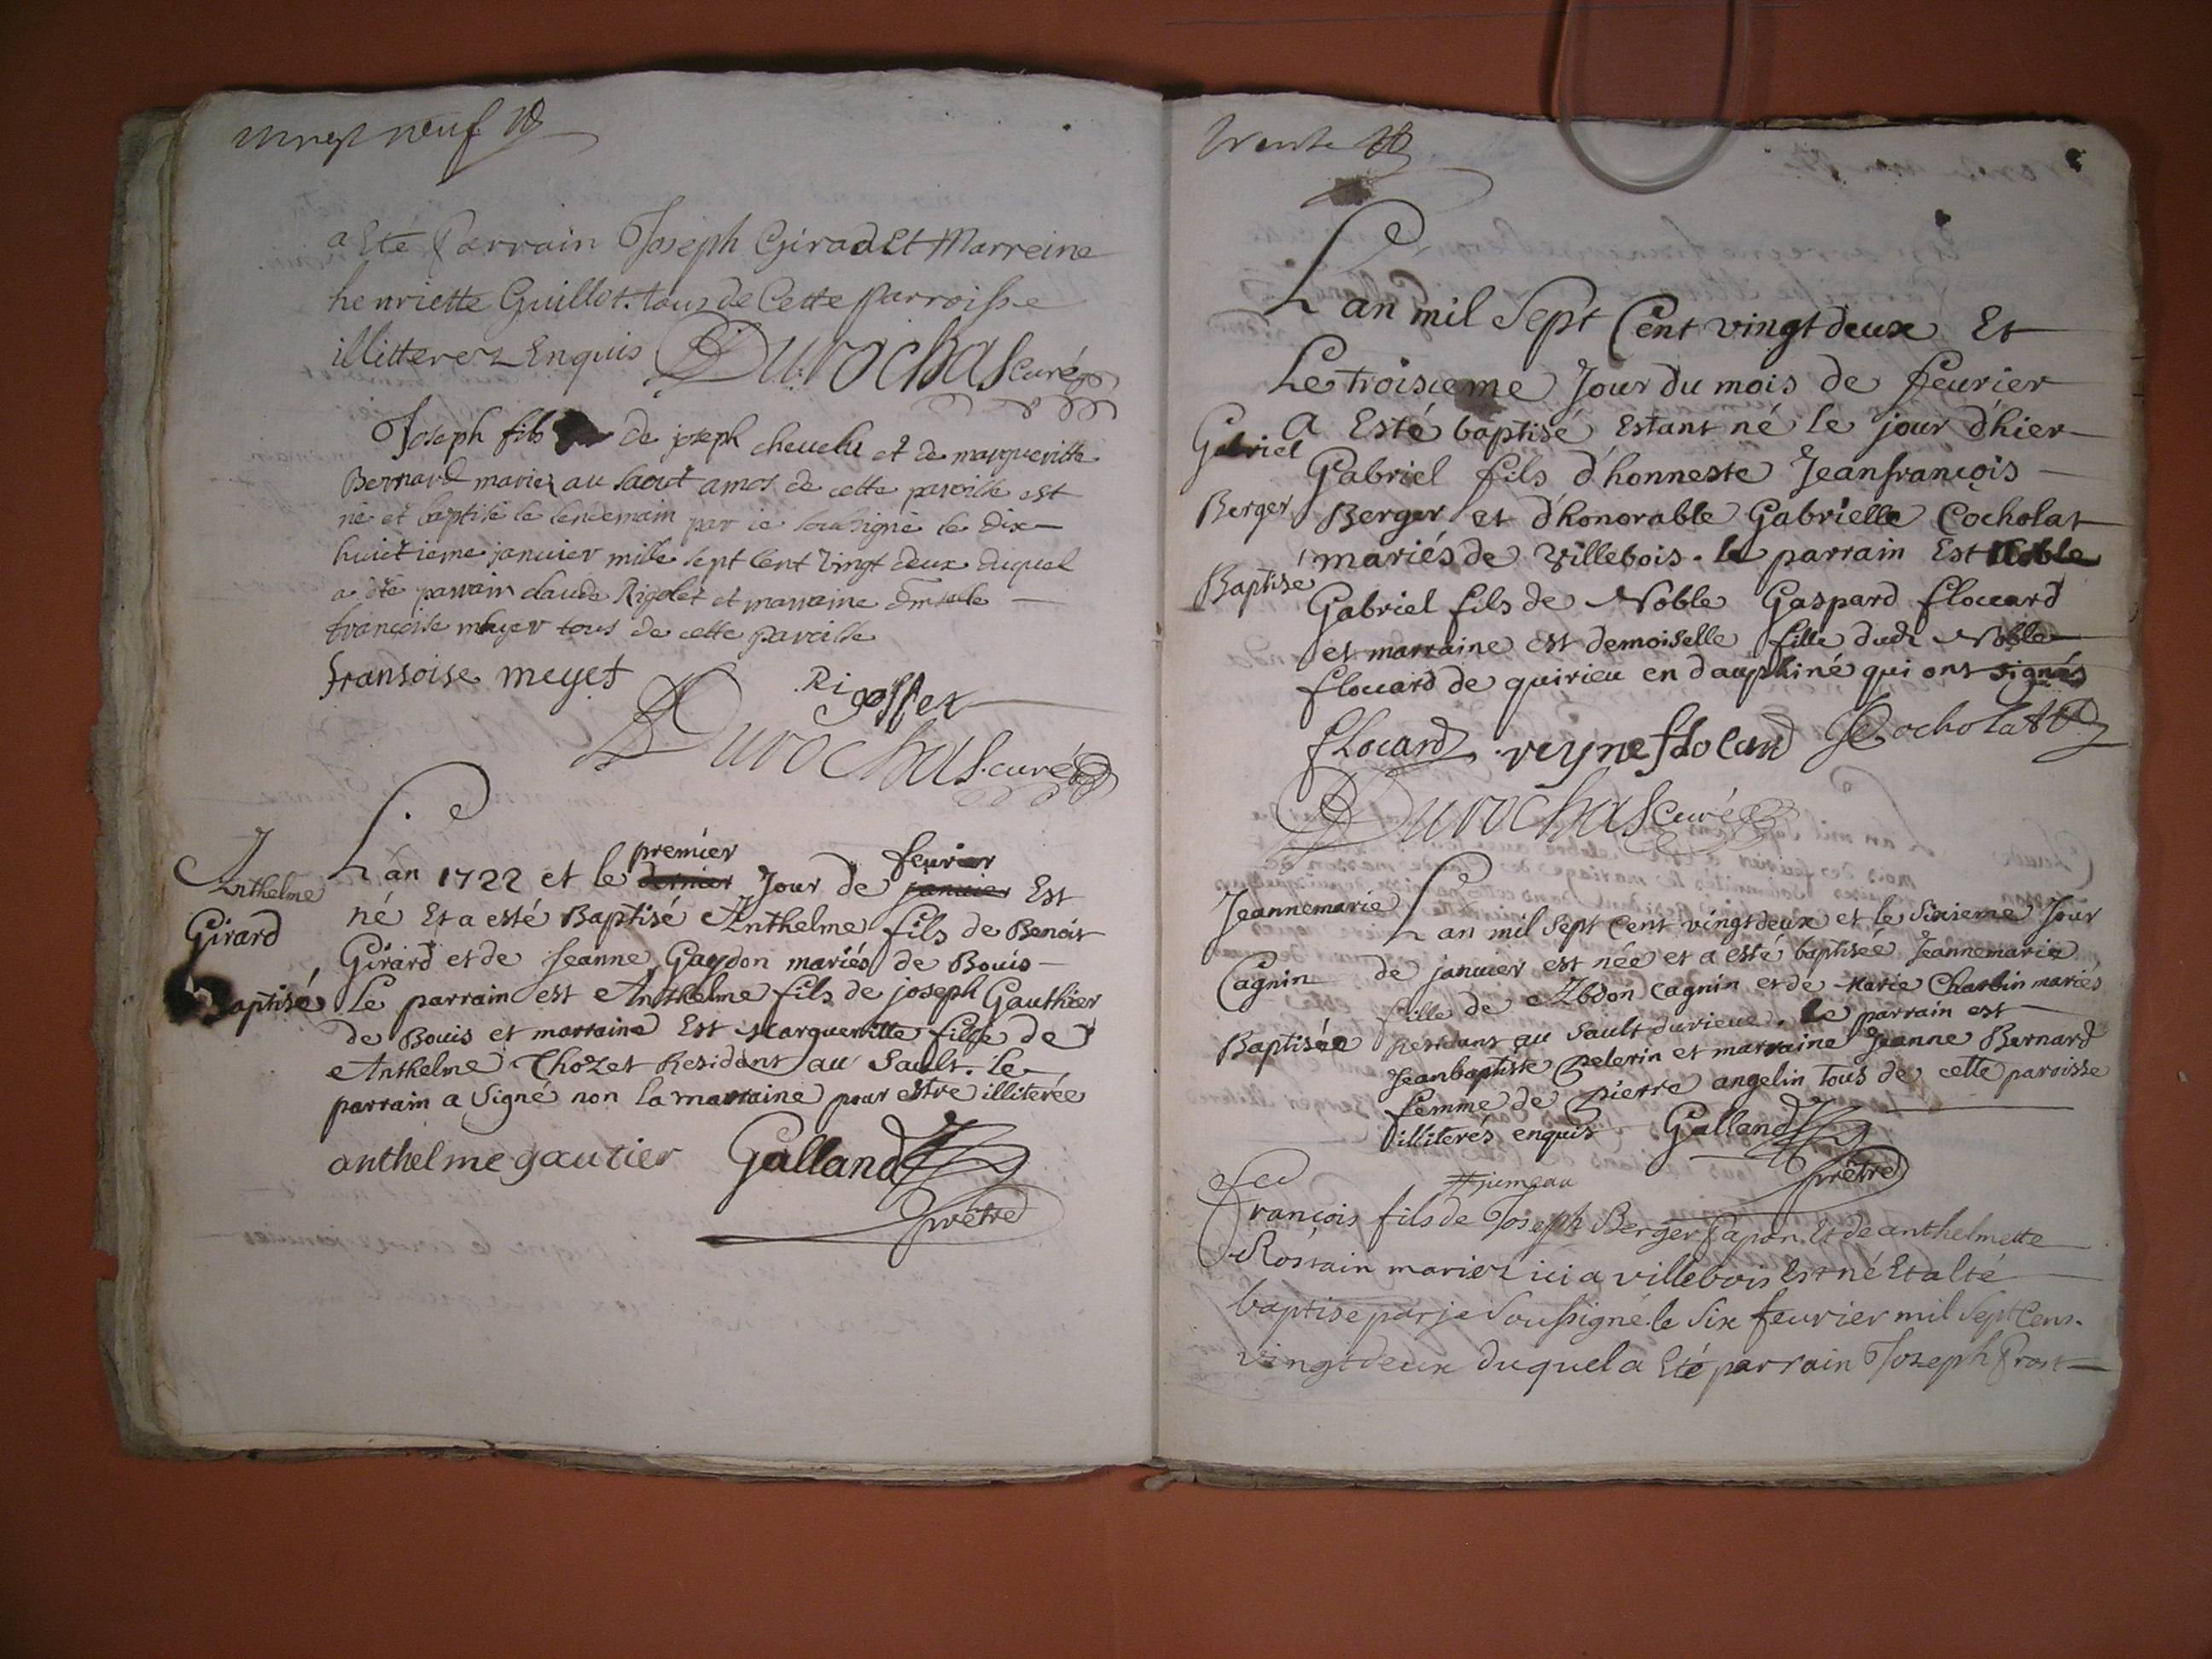 vingt neuf
a Eté Parrain Joseph Girad Et Marreine
henriette Guillot. tous de Cette parroisse
illitterez Enquis Durochas curé
Joseph fils de joseph chevelu et de margueritte
Bernard mariez au saout amos de cette paroisse est
né et baptisé le lendemain par ie soussigné le dix
huictieme januier mille sept cent vingt deux duquel
a été parrain claude Rigolet et marraine dmselle
françoise meyer tous de cette paroisse
fransoise meyet Rigollet
Durochas curé
Anthelme
Girard
Baptisé
premier feurier
L'an 1722 et le dernier Jour de januier Est
né Et a esté Baptisé Anthelme fils de Benoit
Girard et de Jeanne Gaydon mariés de Bouis
Le parrain est Anthelme fils de joseph Gauthier
de Bouis et marraine Est Margueritte fille de
Anthelme Thozet Residant au Sault. le
parrain a signé non la marraine pour estre illiterée
anthelme gautier Galland
prêtre
trente
L an mil Sept Cent vingt deux Et
Le troisieme Jour du mois de feurier
Gabriel
Berger
Baptise
A Esté baptisé Estant né le jour d'hier
Gabriel fils d'honneste Jeanfrançois
Berger et d'honorable Gabrielle Cocholat
mariés de Villebois. le parrain Est Noble
Gabriel fils de Noble Gaspard floccard
et marraine est demoiselle fille dudt Noble
floccard de quirieu en dauphiné qui ont signés
fLocard reyne flocard Cocholat
Durochas curé
Jeannemarie
Cagnin
Baptisée
L an mil Sept Cent vingt deux et le Sixieme Jour
de januier est née et a esté baptiseé Jeannemarie
fille de Abdon Cagnin et de Marie Charbin mariés
Residans au Sault durieue. le parrain est
Jeanbaptiste Pelerin et marraine Jeanne Bernard
femme de Pierre angelin tous de cette paroisse
illiterés enquis Galland
prêtre
jumeau
François fils de Joseph Berger Papon Et de anthelmette
Rostain mariez ici a villebois Est né Et a Eté
baptise par je Soussigné le Six feurier mil Sept Cens
vingt deux duquel a Eté parrain Joseph Frost